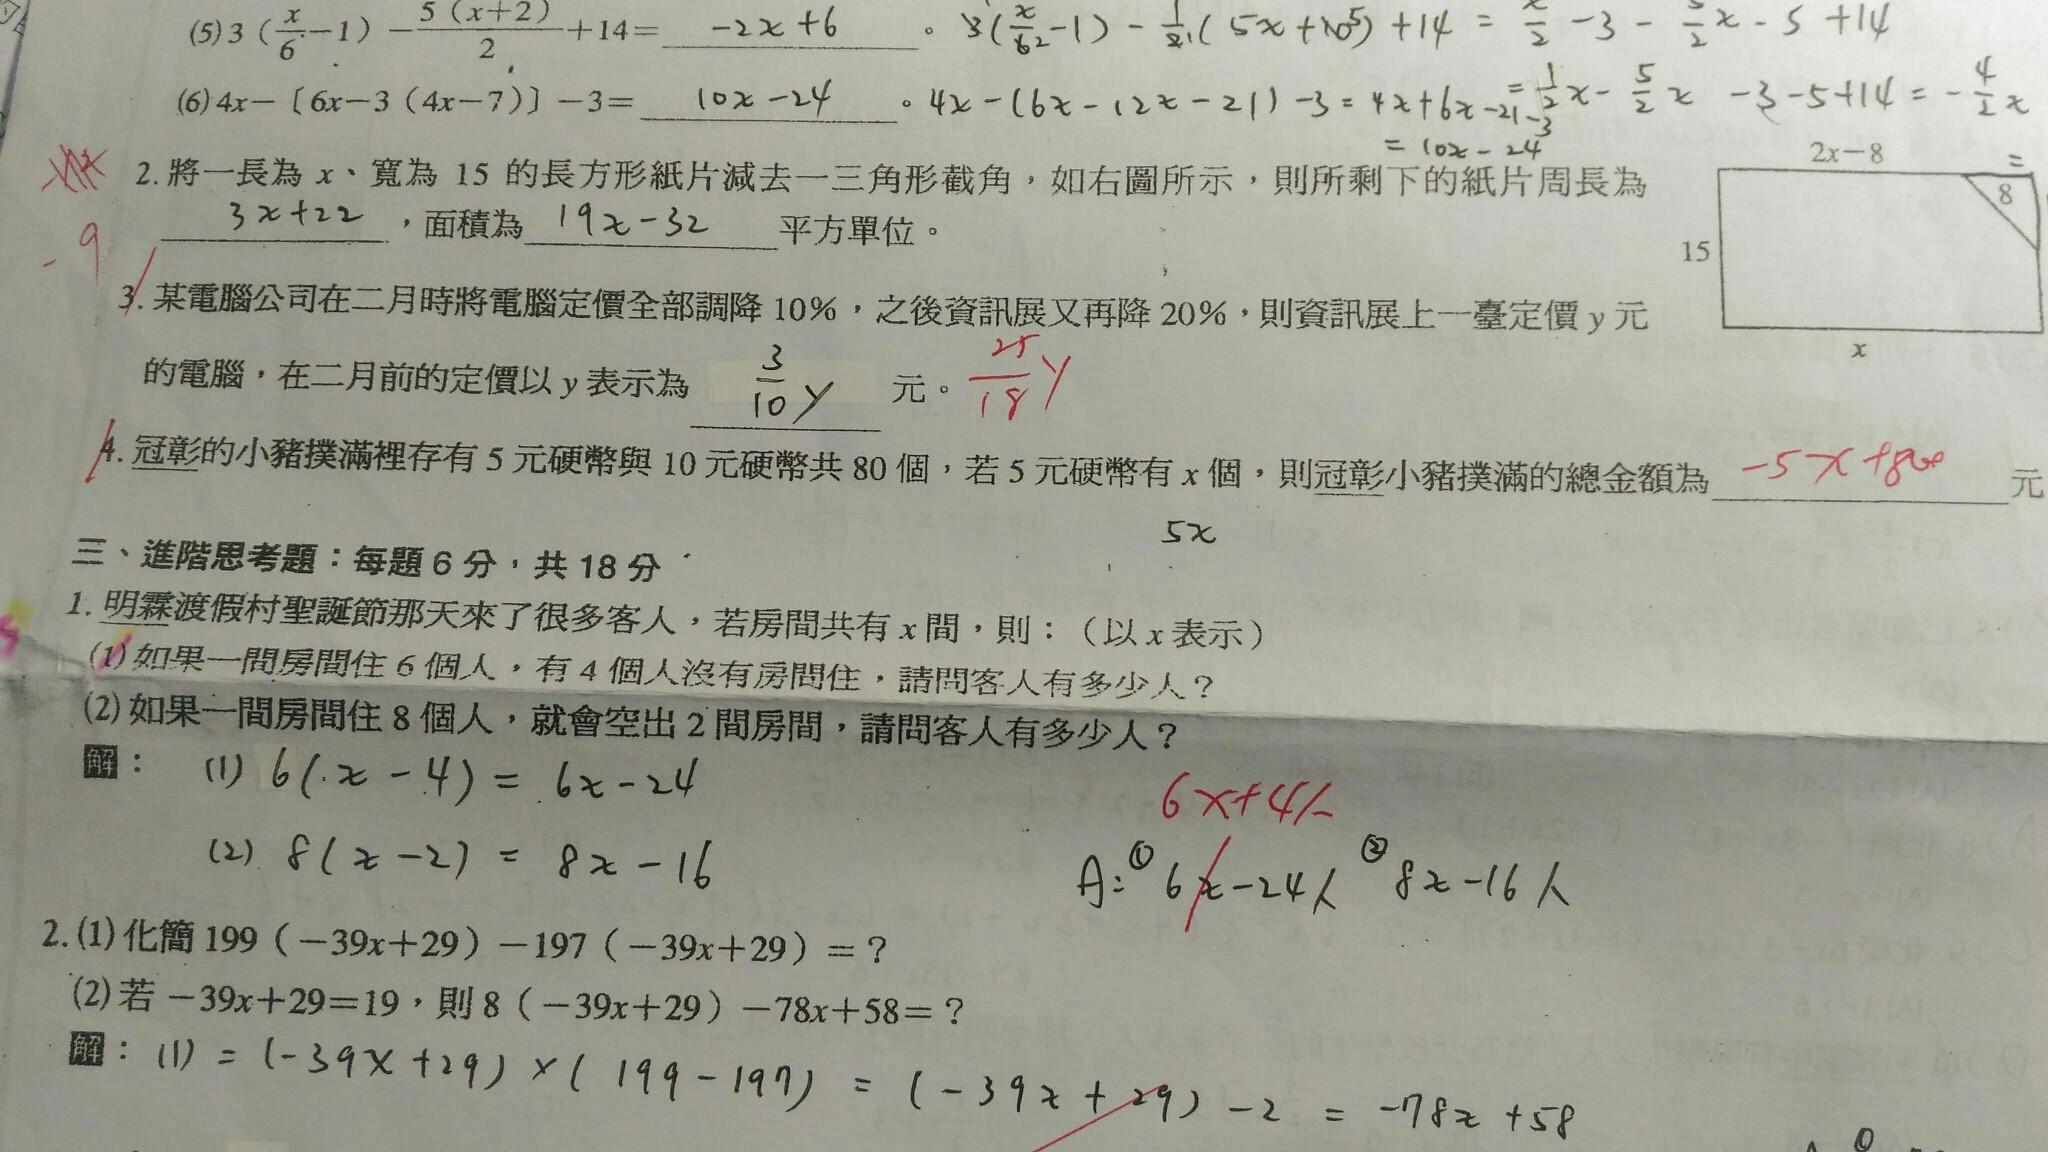 (5) 3（x/6－1）－5（x+2）/2＋14＝ -2x+6 。 3(x/6 2 -1) - 1/2 1 ( 5x+10 5) +14 = x/2 -3 - 5/2 x - 5 +14
(6) 4x－〔6x－3（4x－7）〕－3＝ 10x-24 。 4x-(6x-12x-21)-3 = 4x+6x-21-3 = 1/2 x - 5/2 x -3-5+14 = - 4/2 x
= 10x-24
2x－8 =
2. 將一長為 x、寬為 15 的長方形紙片減去一三角形截角，如右圖所示，則所剩下的紙片周長為
8
3x+22 ，面積為 19x-32 平方單位。
-9
15
3. 某電腦公司在二月時將電腦定價全部調降 10%，之後資訊展又再降 20%，則資訊展上一臺定價 y 元
x
的電腦，在二月前的定價以 y 表示為 3/10 y 元。 25/18 y
4. 冠彰的小豬撲滿裡存有 5 元硬幣與 10 元硬幣共 80 個，若 5 元硬幣有 x 個，則冠彰小豬撲滿的總金額為 -5x+800 元
5x
三、進階思考題：每題 6 分，共 18 分
1. 明霖渡假村聖誕節那天來了很多客人，若房間共有 x 間，則：（以 x 表示）
(1) 如果一間房間住 6 個人，有 4 個人沒有房間住，請問客人有多少人？
(2) 如果一間房間住 8 個人，就會空出 2 間房間，請問客人有多少人？
解： (1) 6(x-4) = 6x-24
6x+4人
(2) 8(x-2) = 8x-16
A: ① 6x-24人 ② 8x-16人
2. (1) 化簡 199（－39x＋29）－197（－39x＋29）＝？
(2) 若 －39x＋29＝19，則 8（－39x＋29）－78x＋58＝？
解： (1) = (-39x+29)×(199-197) = (-39x+29)-2 = -78x+58